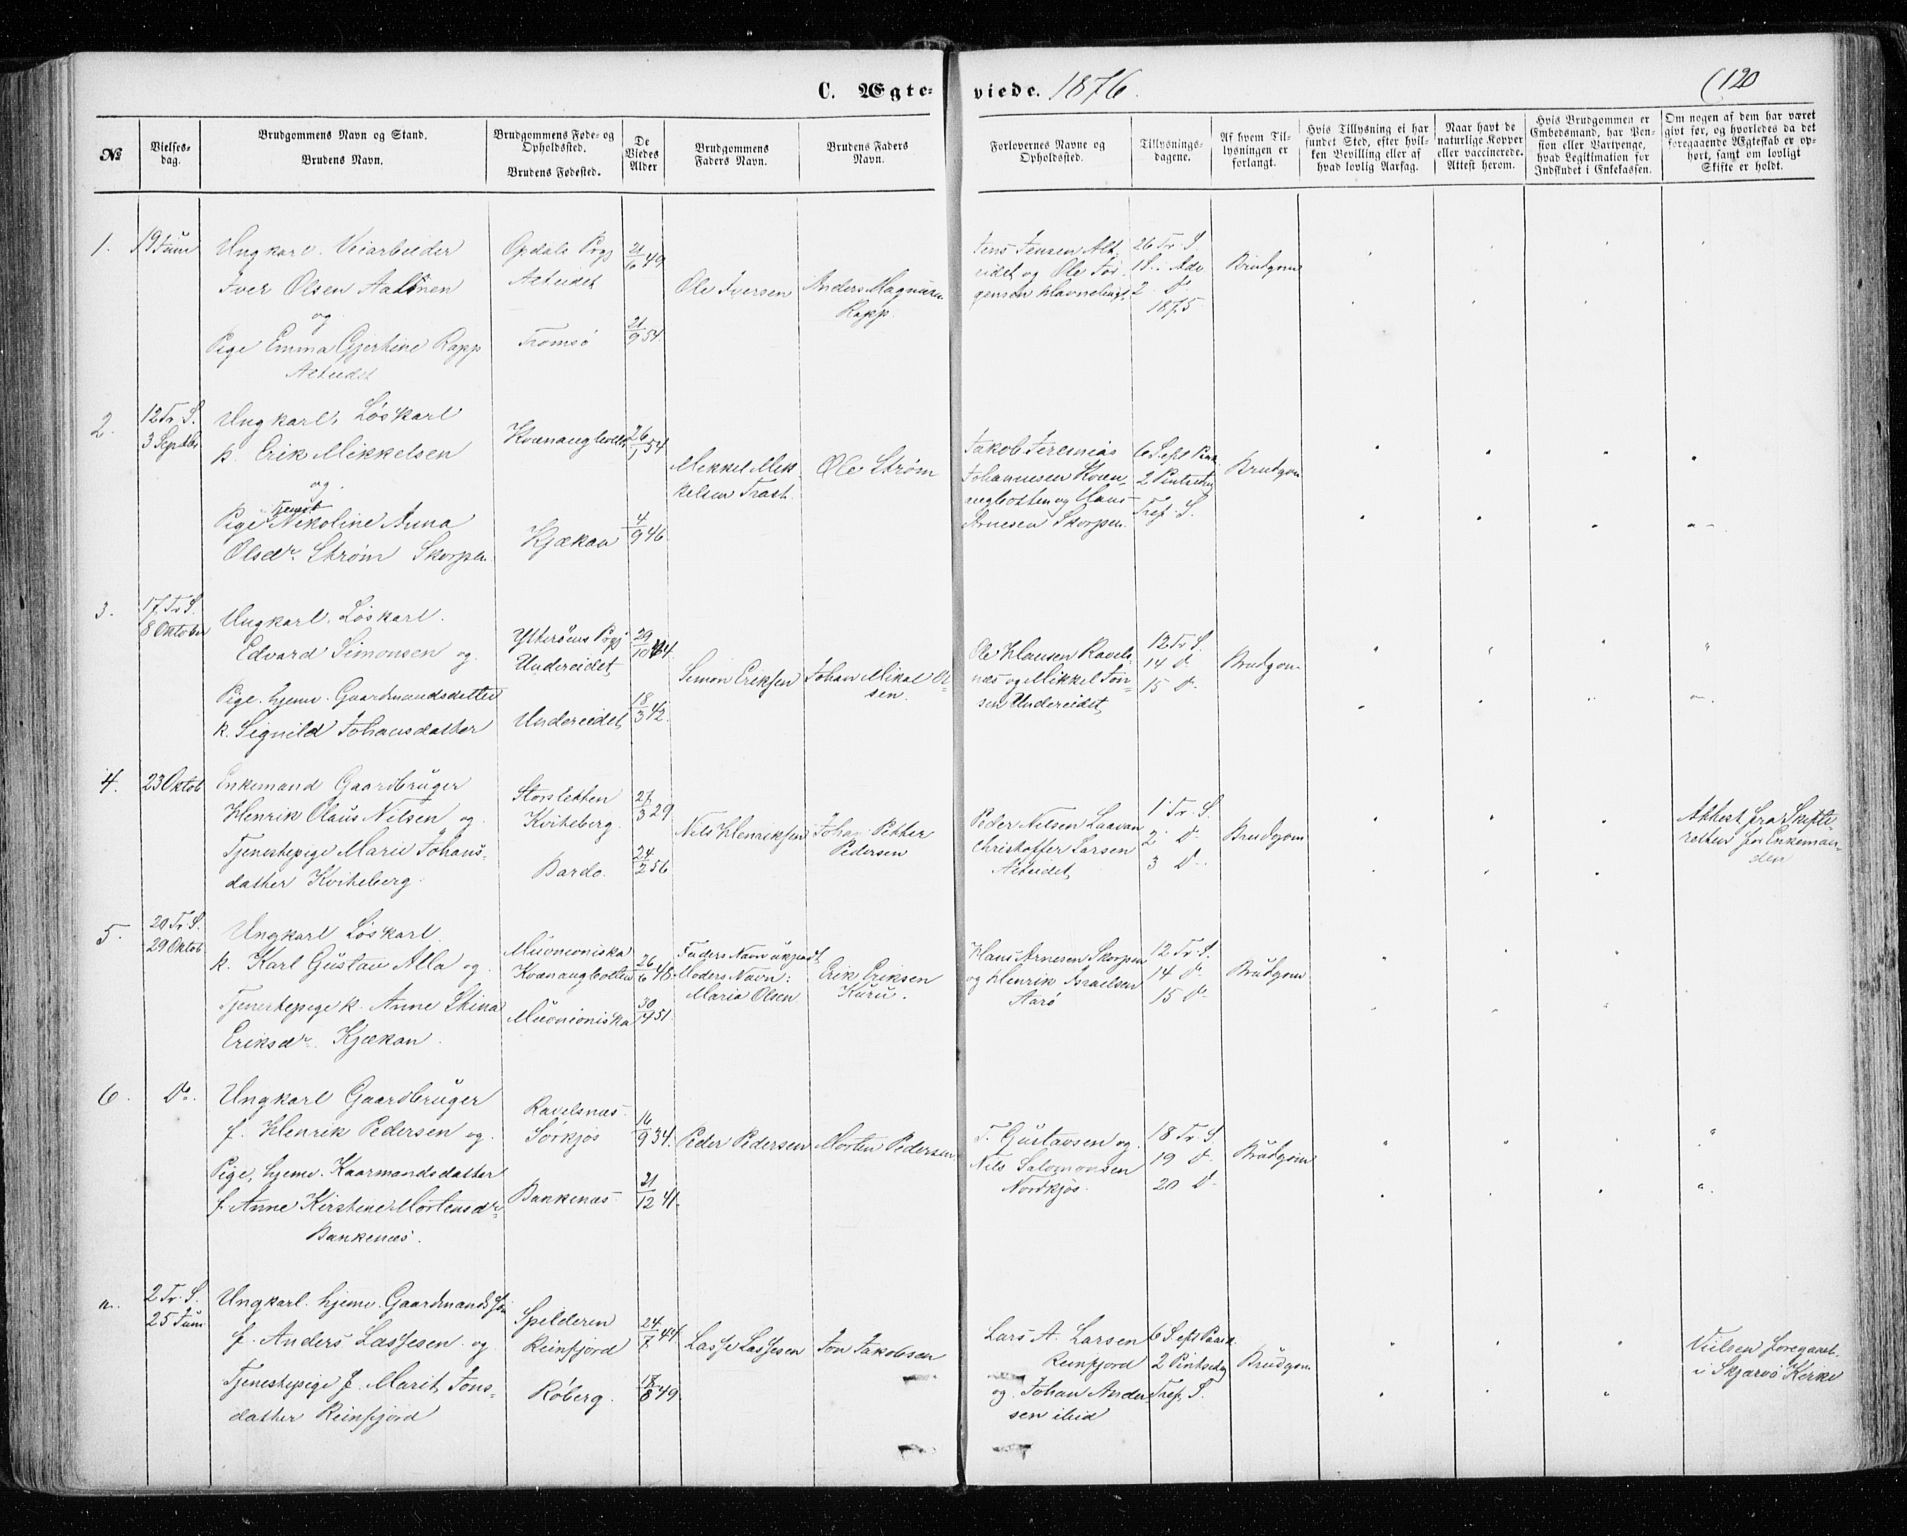 C. Ægte-viede. 1876.
(120
№
Vielses-
dag.
Brudgommens Navn og Stand.
Brudens Navn.
Brudgommens Føde- og
Opholdssted.
Brudens Fødested.
De
Viedes
Alder
Brudgommens
Faders Navn.
Brudens Faders
Navn.
Forlovernes Navne og
Opholdssted.
Tillysnings-
dagene.
Af hvem Til-
lysningen er
forlangt.
Hvis Tillysning ei har
fundet Sted, efter hvil-
ken Bevilling eller af
hvad lovlig Aarsag.
Naar havt de
naturlige Kopper
eller vaccinerede.
Attest herom.
Hvis Brudgommen er
Embedsmand, har Pen-
sion eller Vartpenge,
hvad Legitimation for
Indskudet i Enkekassen.
Om nogen af dem har været
givt før, og hvorledes da det
foregaaende Ægteskab er op-
hørt, samt om lovligt
Skifte er holdt.
1.
19 Juni
Ungkarl. Veiarbeider
Iver Olsen
og
Pige Emma Gjertine Rapp
Alteidet
Opdals Pgj
Alteidet
Tromsø
21/6 49
21/9 54.
Ole Iversen
Anders Magnusen
Rapp.
Jens Jensen Alt-
eidet og Ole Jør-
gensen Havnebugt
26 Tr. S.
1 S. i Adv
2 do
1875
Brudgom
2.
12 Tr. S.
3 Septbr
Ungkarl, Løskarl
k. Erik Mikkelsen
og
Tjenest
Pige Nikoline Anna
Olsdr. Strøm Skorpen.
Kvænangbotten
Kjækan
26/1 54
4/9 46
Mikkel Mik-
kelsen Trast.
Ole Strøm
Jakob Jeremias
Johannesen Kvæn-
angbotten og Hans
Arnesen Skorpen.
6 S. eft Paask
2 Pintsedag
Tref. S.
Brudgom
3.
17 Tr S.
8 Oktober
Ungkarl. Løskarl.
Edvard Simonsen og
Pige. hjem. Gaardmandsdatter
k. Signild Johansdatter
Ytterøens Pgj
Undereidet
Undereidet
29/10 44.
18/3 42.
Simon Eriksen
Johan Mikal Ol-
sen.
Ole Hansen Ravels-
næs og Mikkel Jon-
sen Undereidet
12 Tr S.
14 do
15 do
Brudgom
4.
23 Oktob
Enkemand Gaardbruger
Henrik Olaus Nilsen og
Tjenestepige Marie Johans-
datter Kviteberg.
Storsletten
Kviteberg.
Bardo.
27/3 29
24/2 56
Nils Henriksen
Johan Petter
Pedersen
Peder Nilsen Laavan
Christoffer Larsen
Alteidet
1 Tr. S.
2 do
3 do
Brudgom
Attest fra Skifte-
retten for Enkeman-
den
5.
20 Tr S.
29 Oktob
Ungkarl Løskarl.
k. Karl Gustav Alla og
Tjenestepige k. Anne Stina
Eriksdr. Kjækan.
Muonioniska
Kvænangbotten
Muonioniska
26/6 48.
51
Faders Navn ukjendt
Moders Navn:
Maria Olsen
Erik Eriksen
Kuru.
Hans Arnesen Skorpen
og Henrik Israelsen
Aarø
12 Tr S.
14 do
15 do
Brudgom
6.
do.
Ungkarl Gaardbruger
f. Henrik Pedersen og
Pige, hjem. Kaarmandsdatter
f. Anne Kirstine Mortensdr
Bankenæs.
Ravelsnæs
Sørkjos
Bankenæs
16/9 34.
21/12 41.
Peder Pedersen
Morten Pedersen
T. Gustavsen og
Nils Salomonsen
Nordkjos.
18 Tr. S.
19 do
20 do
Brudgom
a.
2 Tr. S.
25 Juni
Ungkarl. hjem. Gaardmandssøn
f. Anders Lassesen og
Tjenestepige f. Marit Jons-
datter Reinfjord
Spilderen
Reinfjord
Røberg.
24/7 44
18/8 49.
Lasse Lassesen
Jon Jakobsen
Lars A. Larsen
Reinfjord
og Johan Ander-
sen ibid
6 S. eft Paask
2 Pintsedag
Tref. S.
Brudgom
Vielsen foregaaet
i Skjærvø Kirke